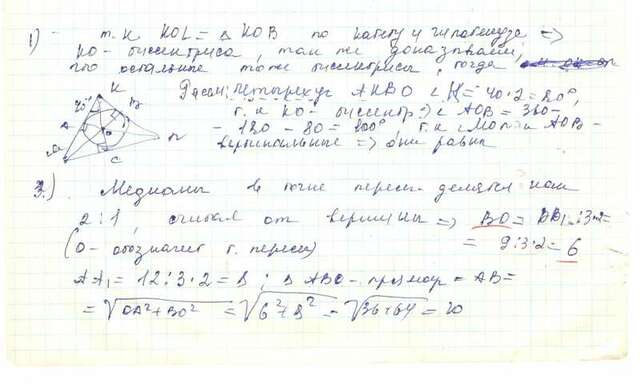 1) т.к KOL = △ KOB по катету и гипотенузе =>
KO - биссектриса, так же доказываем,
что остальные тоже биссектрисы, тогда
Рассм. четырехуг AKBO ∠K = 40·2 = 80°,
т.к KO - биссектр => ∠ AOB = 360 -
- 180 - 80 = 100°, т.к ∠MON и AOB -
вертикальные => они равны
K
40°
A
B
O
M
N
C
3.) Медианы в точке пересеч. делятся как
2:1, считая от вершины => BO = BB₁:3·2 =
(O - обозначает т. пересеч) = 9:3·2 = 6
AA₁ = 12:3·2 = 8; △ ABO - прямоуг = AB =
= √OA²+BO² = √6²+8² = √36+64 = 10